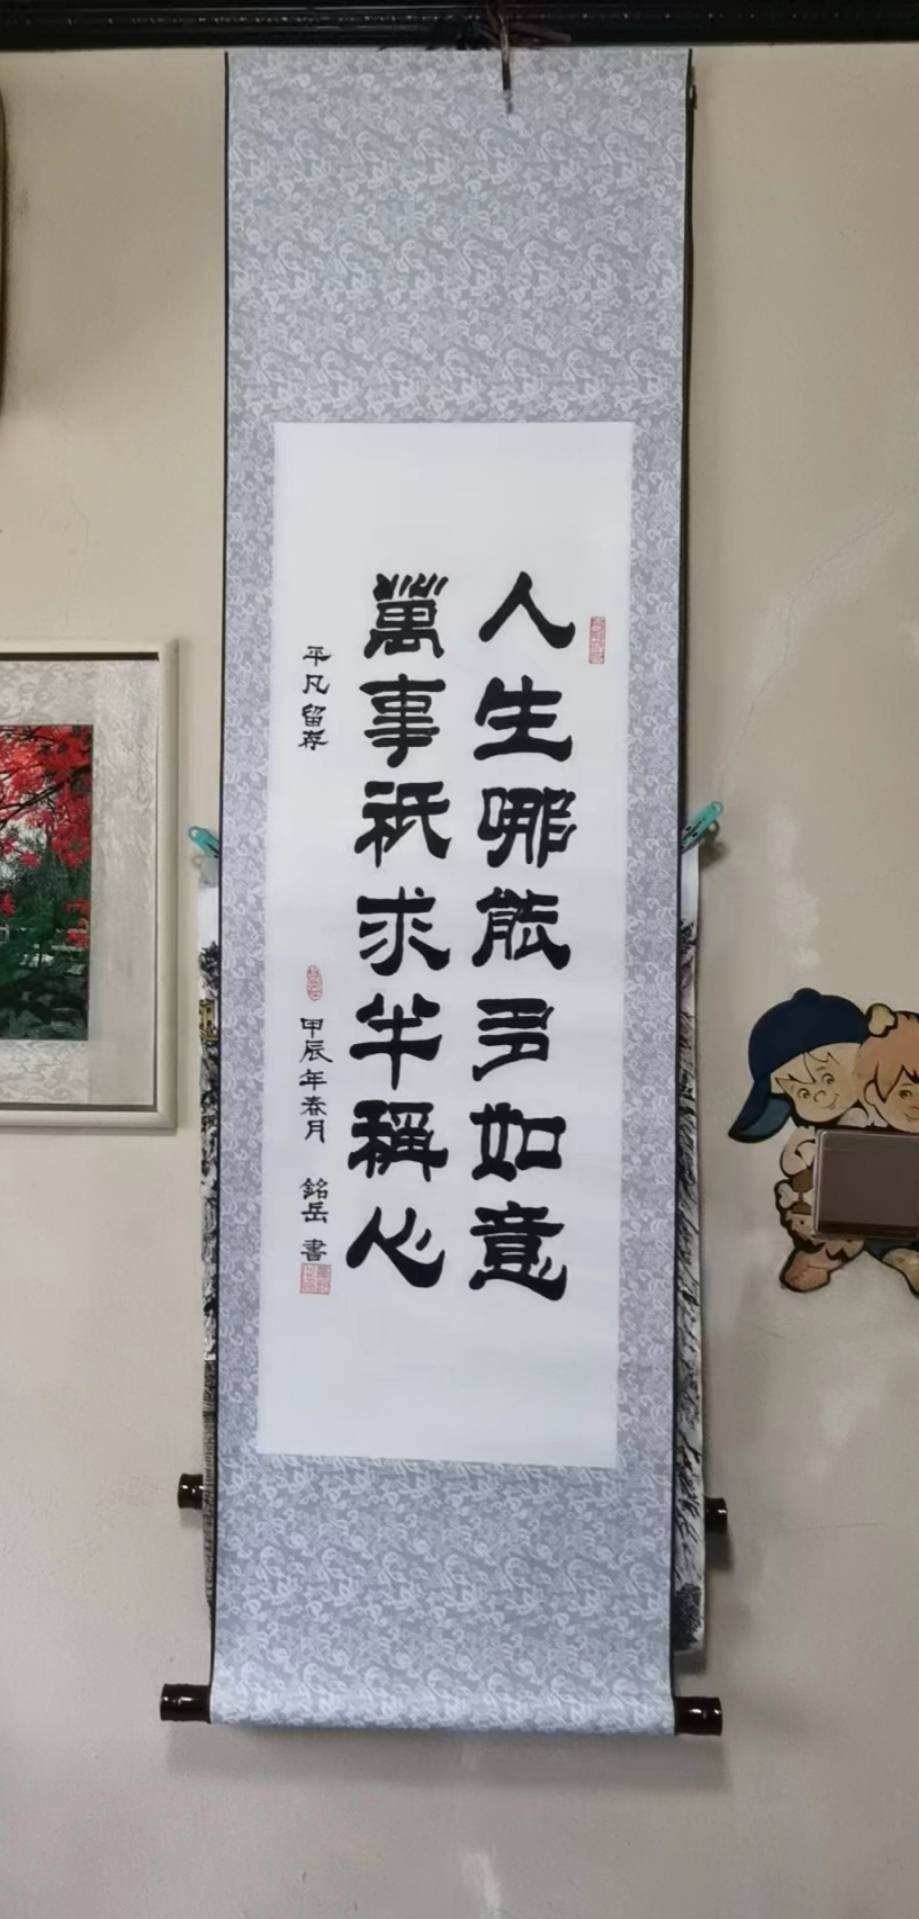 人生哪能多如意
萬事祇求半稱心
平凡留存
甲辰年春月 銘岳 書